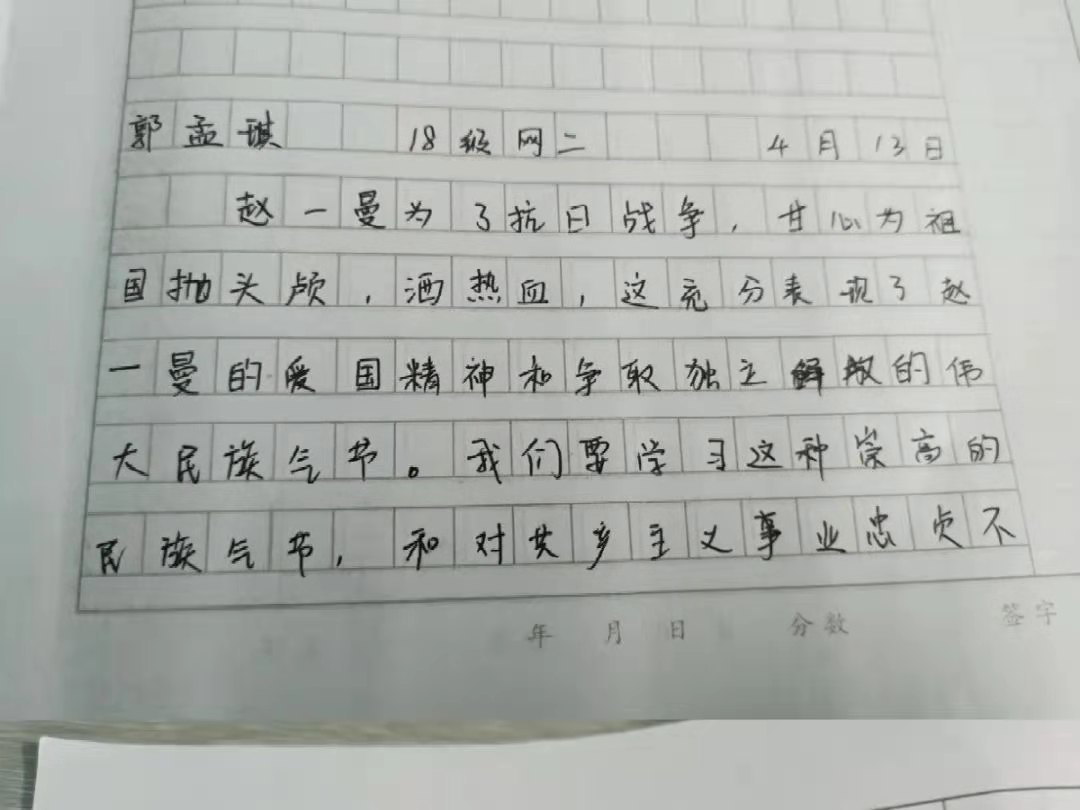 郭孟琪 18级网二 4月13日
赵一曼为了抗日战争，甘心为祖
国抛头颅，洒热血，这充分表现了赵
一曼的爱国精神和争取独立解放的伟
大民族气节。我们要学习这种崇高的
民族气节，和对共产主义事业忠贞不
年 月 日 分数 签字